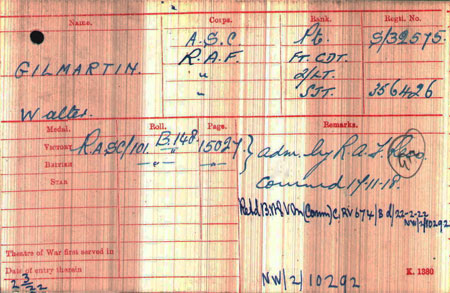 Name. Corps. Rank. Regtl. No.
A.S.C Pt. S/32575.
GILMARTIN. R.A.F. FT. CDT.
" 2/LT.
Walter. " SJT. 356426
Medal. Roll. Page. Remarks.
VICTORY RASC/101 B.148 15027 } adm. by R.A.F.
BRITISH —"— —"—
STAR Commd 17-11-18.
(Comm) C. RV 674/B d/22-2-22
NW/2/10292
Theatre of War first served in
Date of entry therein K. 1380
NW/2/10292